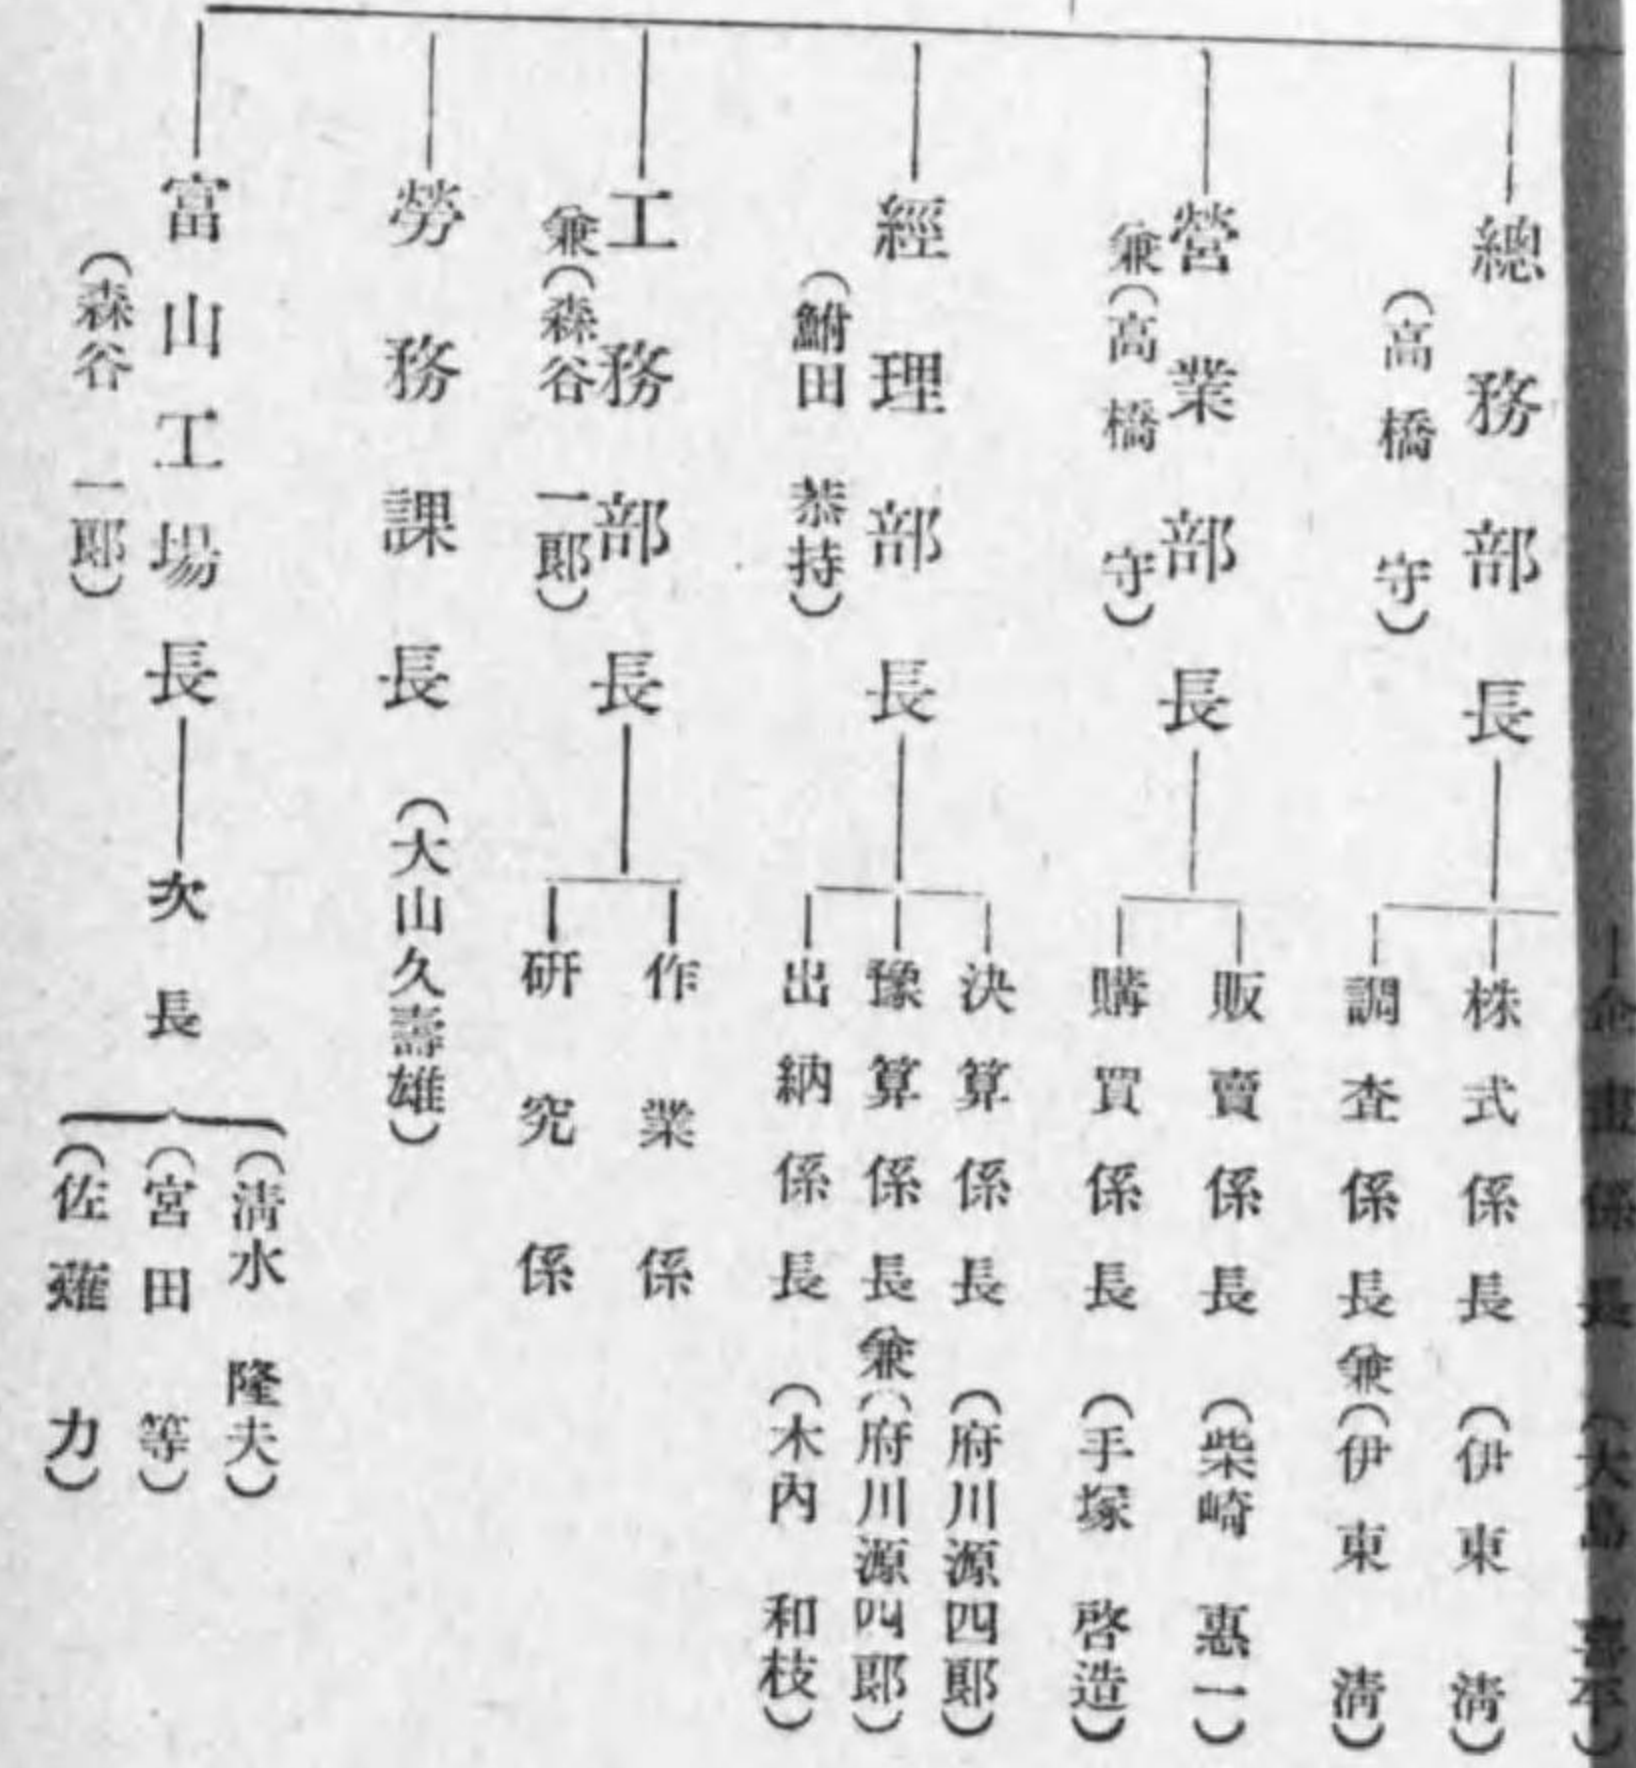 總務部長
（高橋 守）
企畫係長（大島 喜平）
株式係長（伊東 淸）
調査係長兼（伊東 淸）
營業部長
兼（高橋 守）
販賣係長（柴崎 惠一）
購買係長（手塚 啓造）
經理部長
（鮒田 恭持）
決算係長（府川源四郞）
豫算係長兼（府川源四郞）
出納係長（木內 和枝）
工務部長
兼（森谷 一郞）
作業係
硏究係
勞務課長（大山久壽雄）
富山工場長
（森谷 一郞）
次長
（淸水 隆夫）
（宮田 等）
（佐 力）